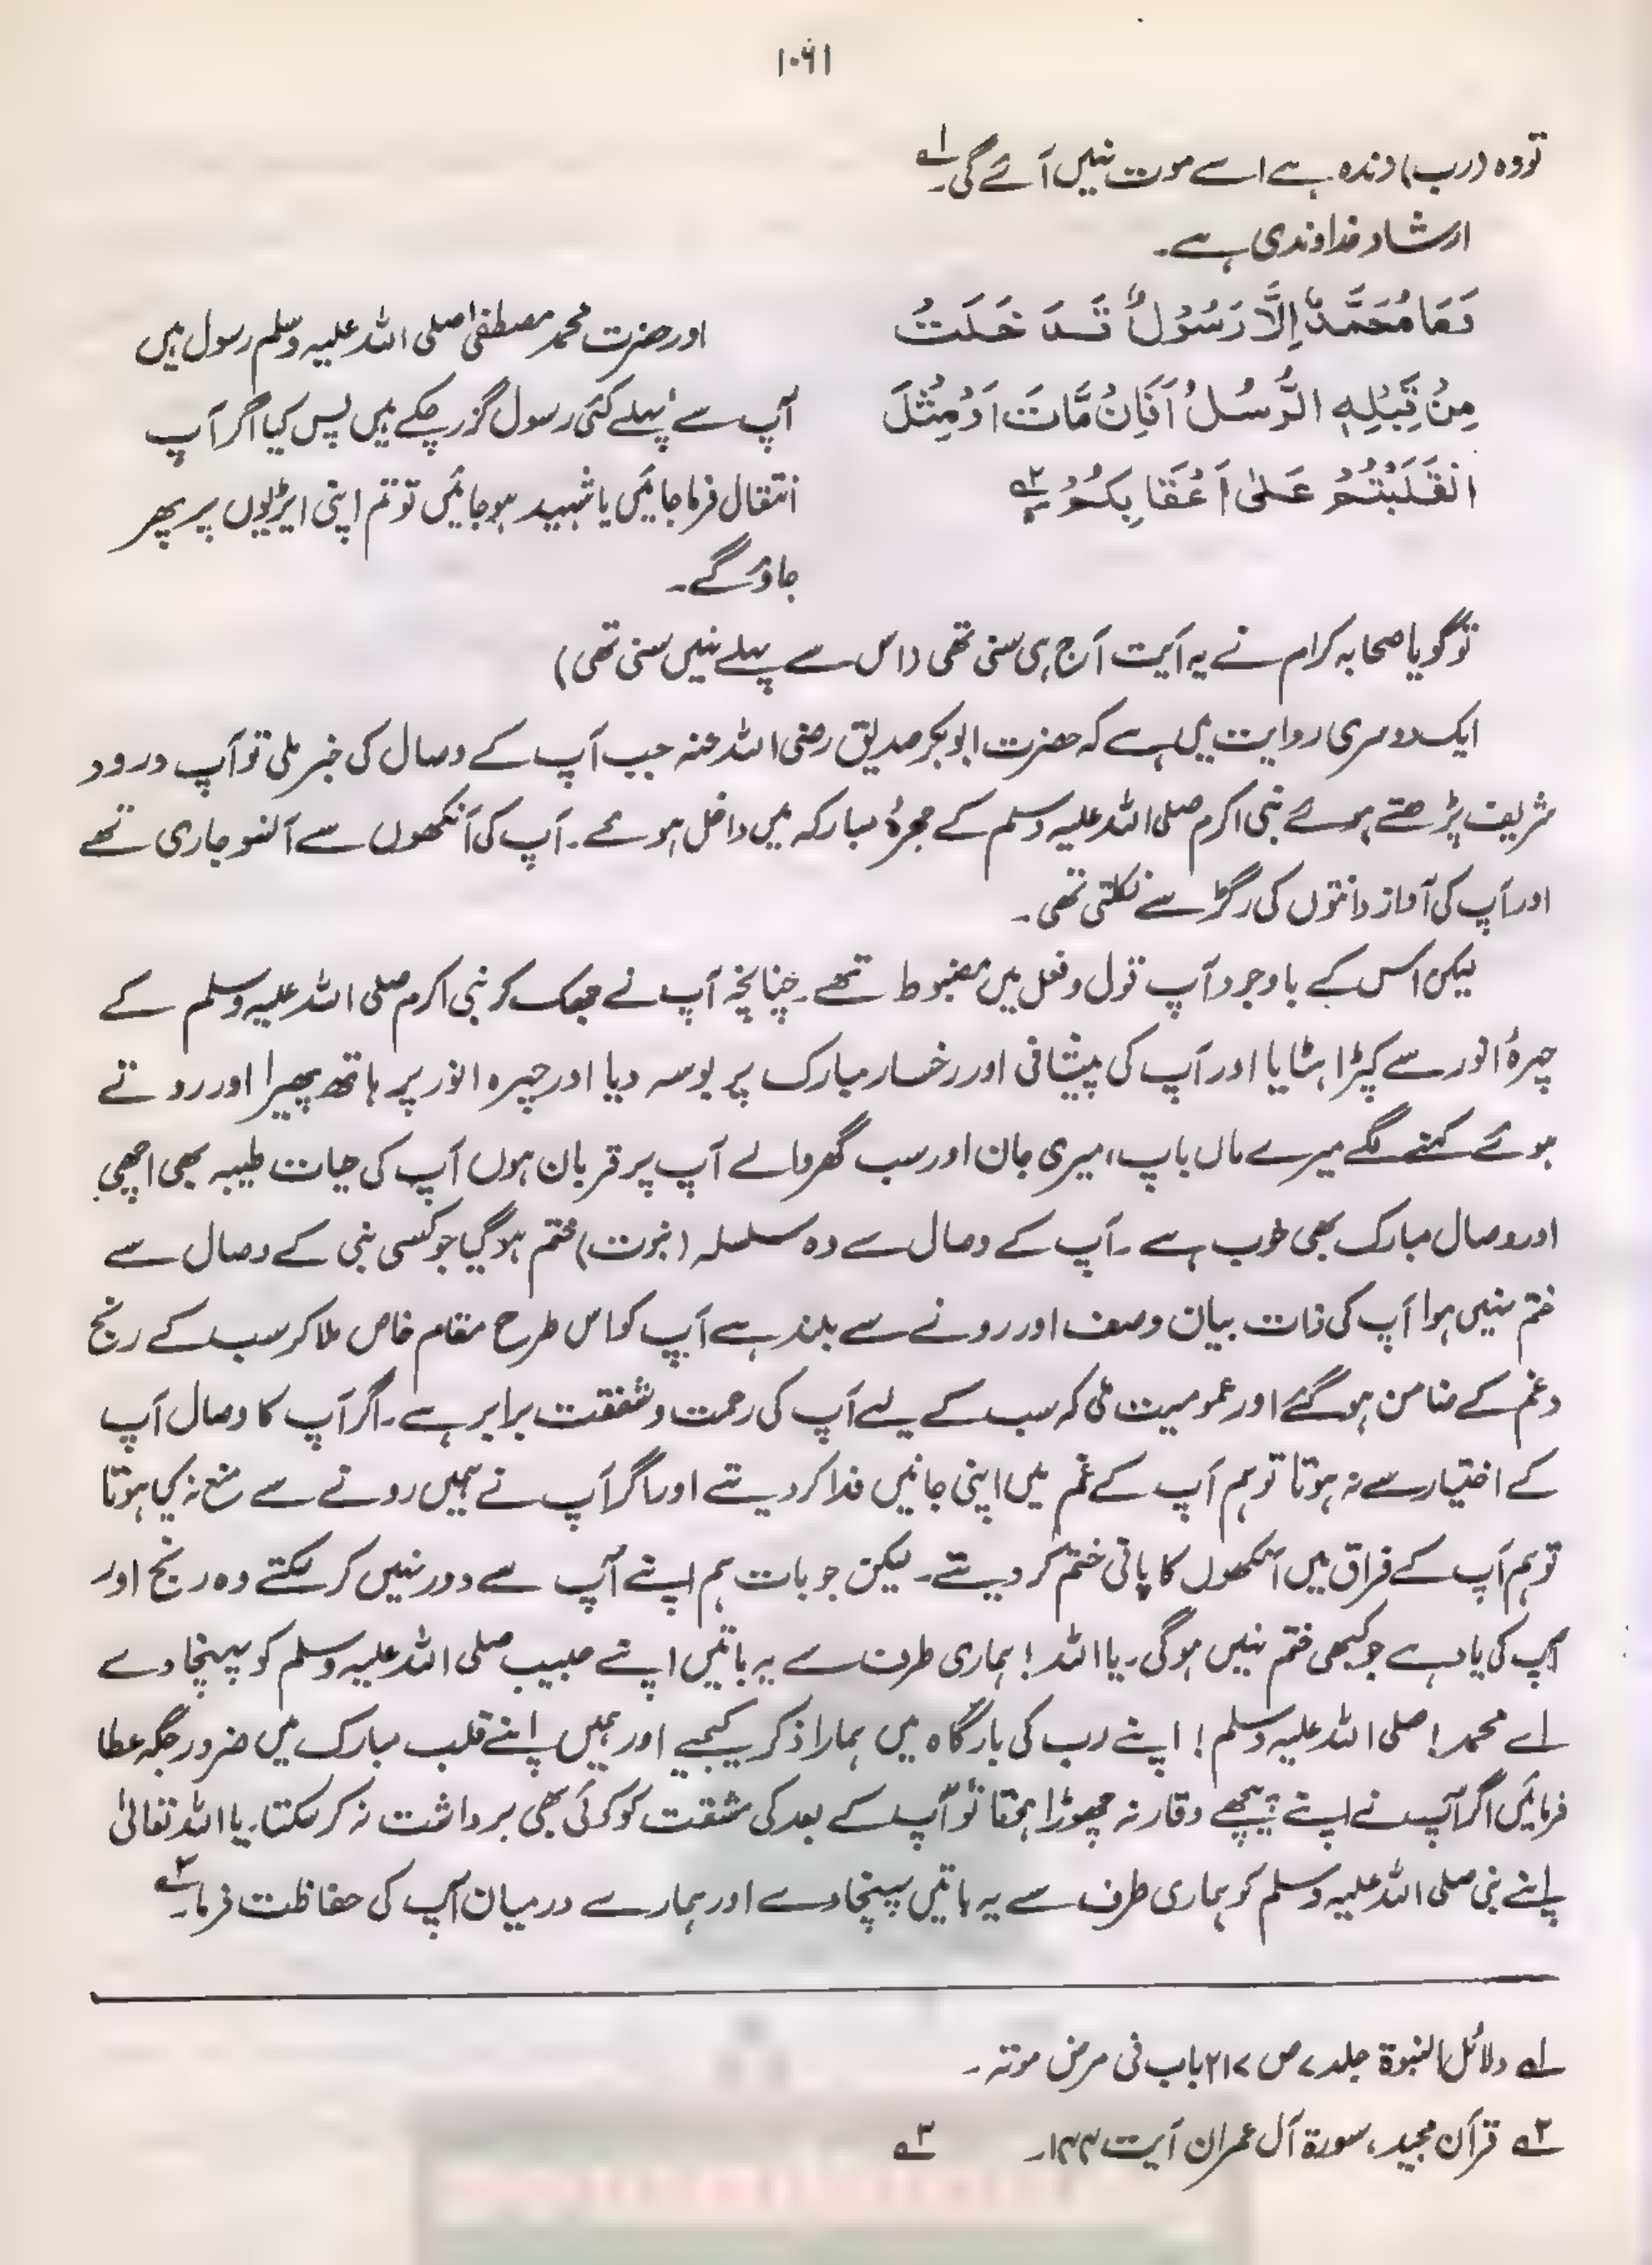 ۱۰۶۱
تو وہ (رب) زندہ ہے اسے موت نہیں آئے گی۔ ۱؎
ارشاد خداوندی ہے۔
وَمَا مُحَمَّدٌ اِلَّا رَسُوْلٌ قَدْ خَلَتْ
مِنْ قَبْلِهِ الرُّسُلُ اَفَاِنْ مَّاتَ اَوْ قُتِلَ
انْقَلَبْتُمْ عَلٰى اَعْقَابِكُمْ ۲؎
اور حضرت محمد مصطفیٰ صلی اللہ علیہ وسلم رسول ہیں
آپ سے پہلے کئی رسول گزر چکے ہیں پس کیا اگر آپ
انتقال فرما جائیں یا شہید ہو جائیں تو تم اپنی ایڑیوں پر پھر
جاؤ گے۔
تو گویا صحابہ کرام نے یہ آیت آج ہی سنی تھی (اس سے پہلے نہیں سنی تھی)
ایک دوسری روایت میں ہے کہ حضرت ابوبکر صدیق رضی اللہ عنہ جب آپ کے وصال کی خبر ملی تو آپ درود
شریف پڑھتے ہوئے نبی اکرم صلی اللہ علیہ وسلم کے حجرۂ مبارکہ میں داخل ہوئے۔ آپ کی آنکھوں سے آنسو جاری تھے
اور آپ کی آواز دانتوں کی رگڑ سے نکلتی تھی۔
لیکن اس کے باوجود آپ قول و فعل میں مضبوط تھے۔ چنانچہ آپ نے جھک کر نبی اکرم صلی اللہ علیہ وسلم کے
چہرۂ انور سے کپڑا ہٹایا اور آپ کی پیشانی اور رخسار مبارک پر بوسہ دیا اور چہرہ انور پر ہاتھ پھیرا اور روتے
ہوئے کہنے لگے میرے ماں باپ، میری جان اور سب گھر والے آپ پر قربان ہوں آپ کی حیات طیبہ بھی اچھی
اور وصال مبارک بھی خوب ہے۔ آپ کے وصال سے وہ سلسلہ (نبوت) ختم ہو گیا جو کسی نبی کے وصال سے
ختم نہیں ہوا آپ کی ذات بیان وصف اور رونے سے بلند ہے آپ کو اس طرح مقام خاص ملا کر سب کے رنج
و غم کے ضامن ہو گئے اور عمومیت ملی کہ سب کے لیے آپ کی رحمت و شفقت برابر ہے۔ اگر آپ کا وصال آپ
کے اختیار سے نہ ہوتا تو ہم آپ کے غم میں اپنی جانیں فدا کر دیتے اور اگر آپ نے ہمیں رونے سے منع نہ کیا ہوتا
تو ہم آپ کے فراق میں آنکھوں کا پانی ختم کر دیتے۔ لیکن جو بات ہم اپنے آپ سے دور نہیں کر سکتے وہ رنج اور
آپ کی یاد ہے جو کبھی ختم نہیں ہوگی۔ یا اللہ! ہماری طرف سے یہ باتیں اپنے حبیب صلی اللہ علیہ وسلم کو پہنچا دے
اے محمد! صلی اللہ علیہ وسلم! اپنے رب کی بارگاہ میں ہمارا ذکر کیجیے اور ہمیں اپنے قلب مبارک میں ضرور جگہ عطا
فرمائیں اگر آپ نے اپنے پیچھے وقار نہ چھوڑا ہوتا تو آپ کے بعد کی مشقت کو کوئی بھی برداشت نہ کر سکتا۔ یا اللہ تعالیٰ
اپنے نبی صلی اللہ علیہ وسلم کو ہماری طرف سے یہ باتیں پہنچا دے اور ہمارے درمیان آپ کی حفاظت فرما۔ ۳؎
۱؎ دلائل النبوۃ جلد ۷ ص ۲۱۷ باب فی مرض موتہ۔
۲؎ قرآن مجید، سورۃ آل عمران آیت ۱۴۴۔ ۳؎